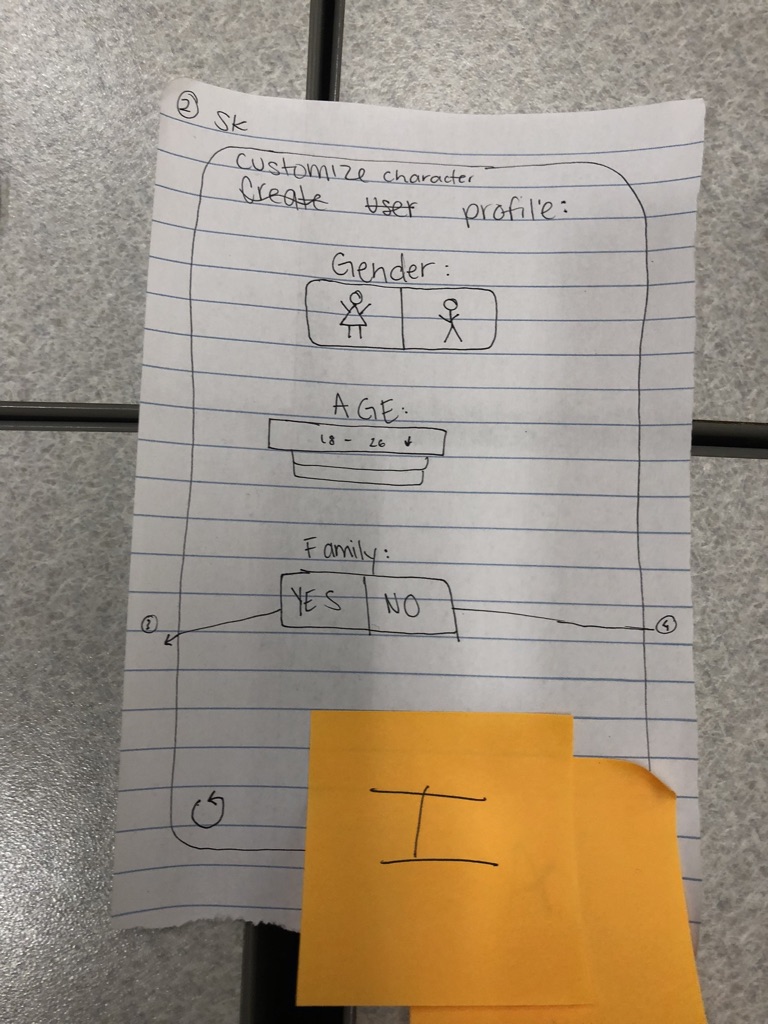 ② SK
customize character
Create user profile:
Gender:
AGE:
18 - 26 ↓
Family:
YES NO
③ ④
I